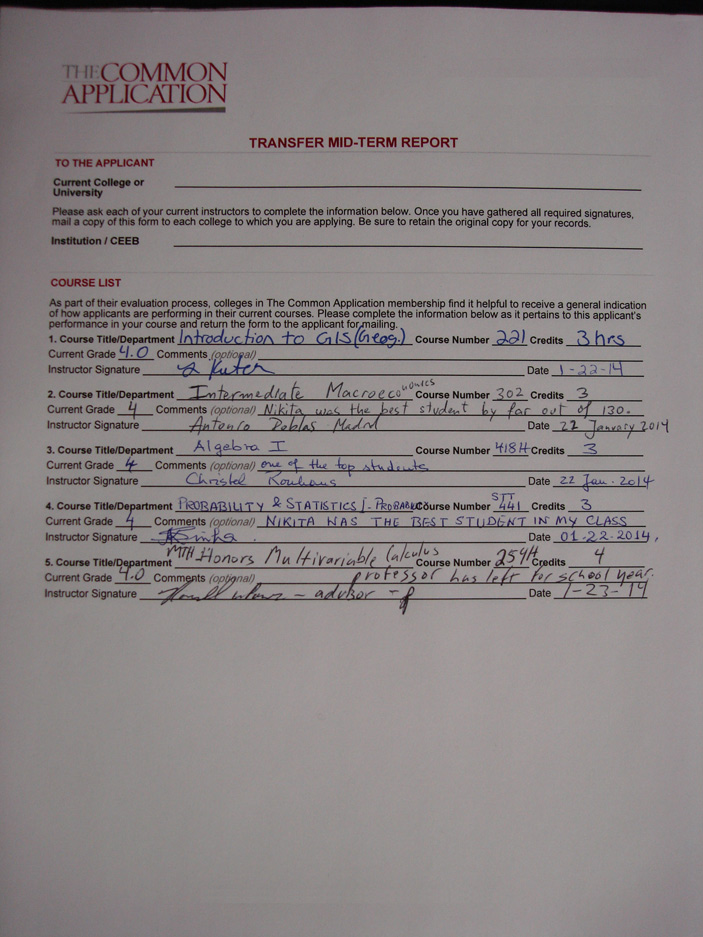 THE COMMON
APPLICATION
TRANSFER MID-TERM REPORT
TO THE APPLICANT
Current College or
University
Please ask each of your current instructors to complete the information below. Once you have gathered all required signatures,
mail a copy of this form to each college to which you are applying. Be sure to retain the original copy for your records.
Institution / CEEB
COURSE LIST
As part of their evaluation process, colleges in The Common Application membership find it helpful to receive a general indication
of how applicants are performing in their current courses. Please complete the information below as it pertains to this applicant's
performance in your course and return the form to the applicant for mailing.
1. Course Title/Department Introduction to GIS (Geog.) Course Number 221 Credits 3 hrs
Current Grade 4.0 Comments (optional)
Instructor Signature Date 1-22-14
2. Course Title/Department Intermediate Macroeconomics Course Number 302 Credits 3
Current Grade 4 Comments (optional) Nikita was the best student by far out of 130.
Instructor Signature Antonio Doblas-Madrid Date 22 January 2014
3. Course Title/Department Algebra I Course Number 418H Credits 3
Current Grade 4 Comments (optional) one of the top students
Instructor Signature Christel Rotthaus Date 22 Jan. 2014
4. Course Title/Department PROBABILITY & STATISTICS I - PROBABI Course Number STT 441 Credits 3
Current Grade 4 Comments (optional) NIKITA WAS THE BEST STUDENT IN MY CLASS
Instructor Signature Date 01-22-2014.
5. Course Title/Department MTH Honors Multivariable Calculus Course Number 254H Credits 4
Current Grade 4.0 Comments (optional) professor has left for school year.
Instructor Signature - advisor - Date 1-23-14